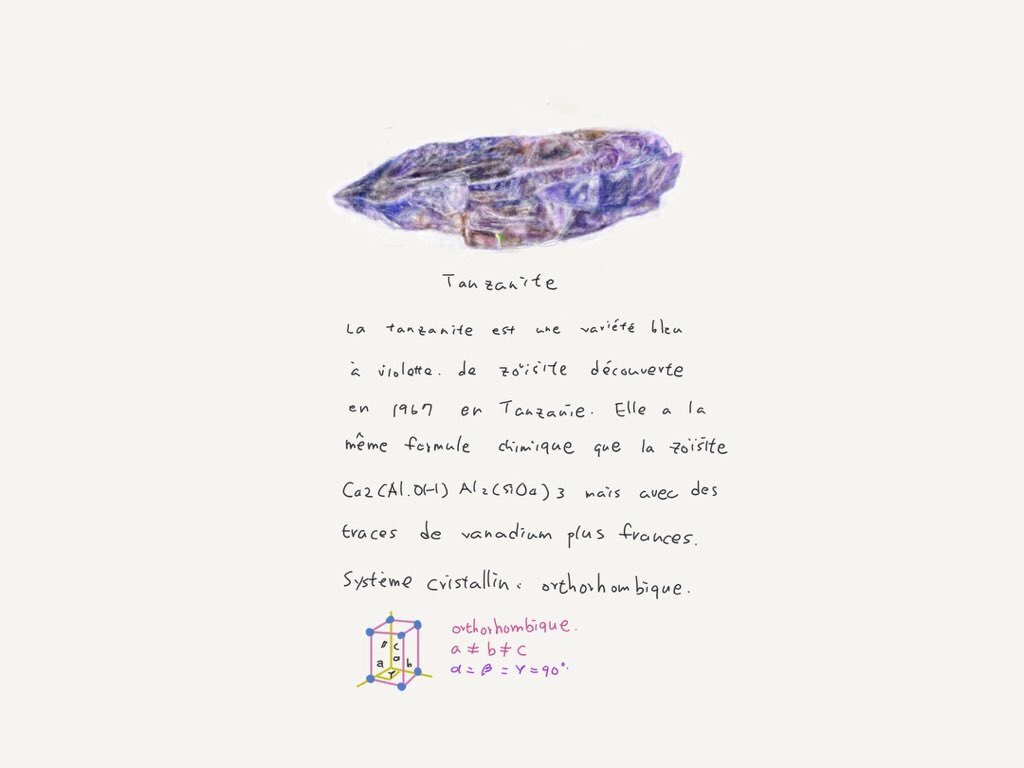 Tanzanite
La tanzanite est une variété bleu
à violette. de zoïsite découverte
en 1967 en Tanzanie. Elle a la
même formule chimique que la zoïsite
Ca2(Al.OH) Al2(SiO4)3 mais avec des
traces de vanadium plus frances.
Système cristallin: orthorhombique.
orthorhombique.
a ≠ b ≠ c
α = β = γ = 90°
a b c